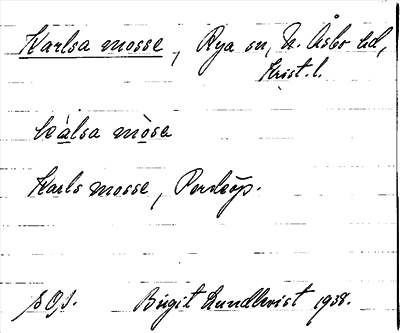 Karlsa mosse, Rya sn, N. Åsbo hd,
Krist. l.
kálsa mòse
Karls mosse,
Birgit Lundkvist 1938.